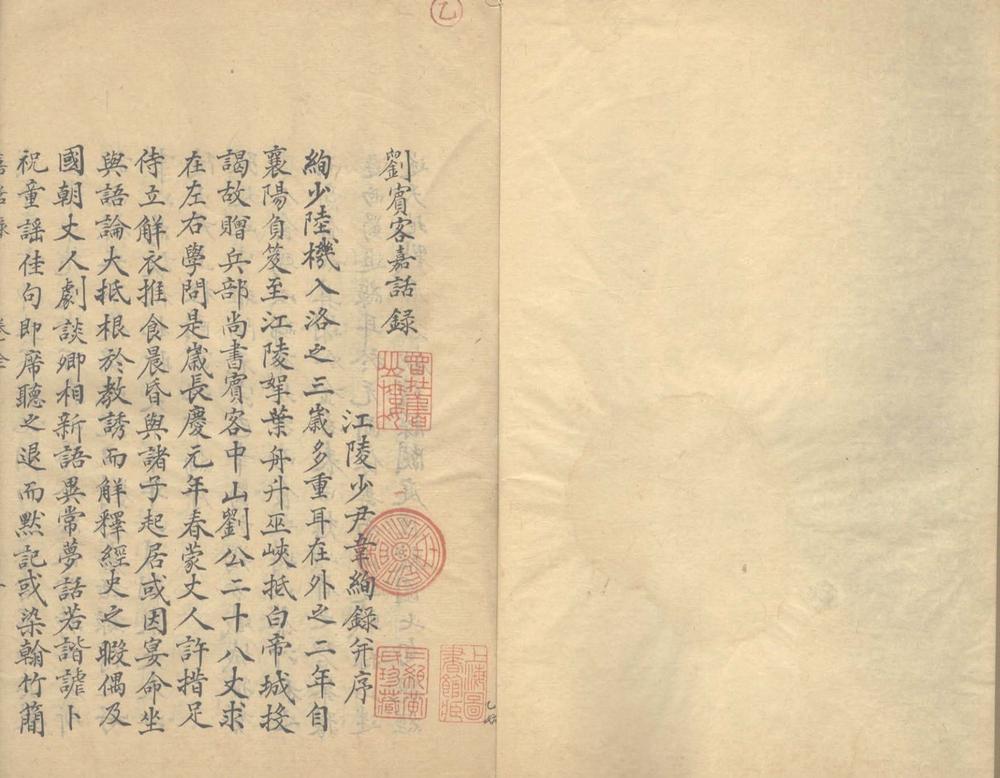 劉賓客嘉話録
江陵少尹韋絢録并序
絢少陸機入洛之三歲多重耳在外之二年自
襄陽負笈至江陵挐葉舟升巫峽抵白帝城投
謁故贈兵部尚書賓客中山劉公二十八丈求
在左右學問是歲長慶元年春蒙丈人許措足
侍立解衣推食晨昏與諸子起居或因宴命坐
與語論大抵根於教誘而解釋經史之暇偶及
國朝丈人劇談卿相新語異常夢話若諧謔卜
祝童謡佳句即席聽之退而默記或染翰竹簡
乙
上海圖書館藏